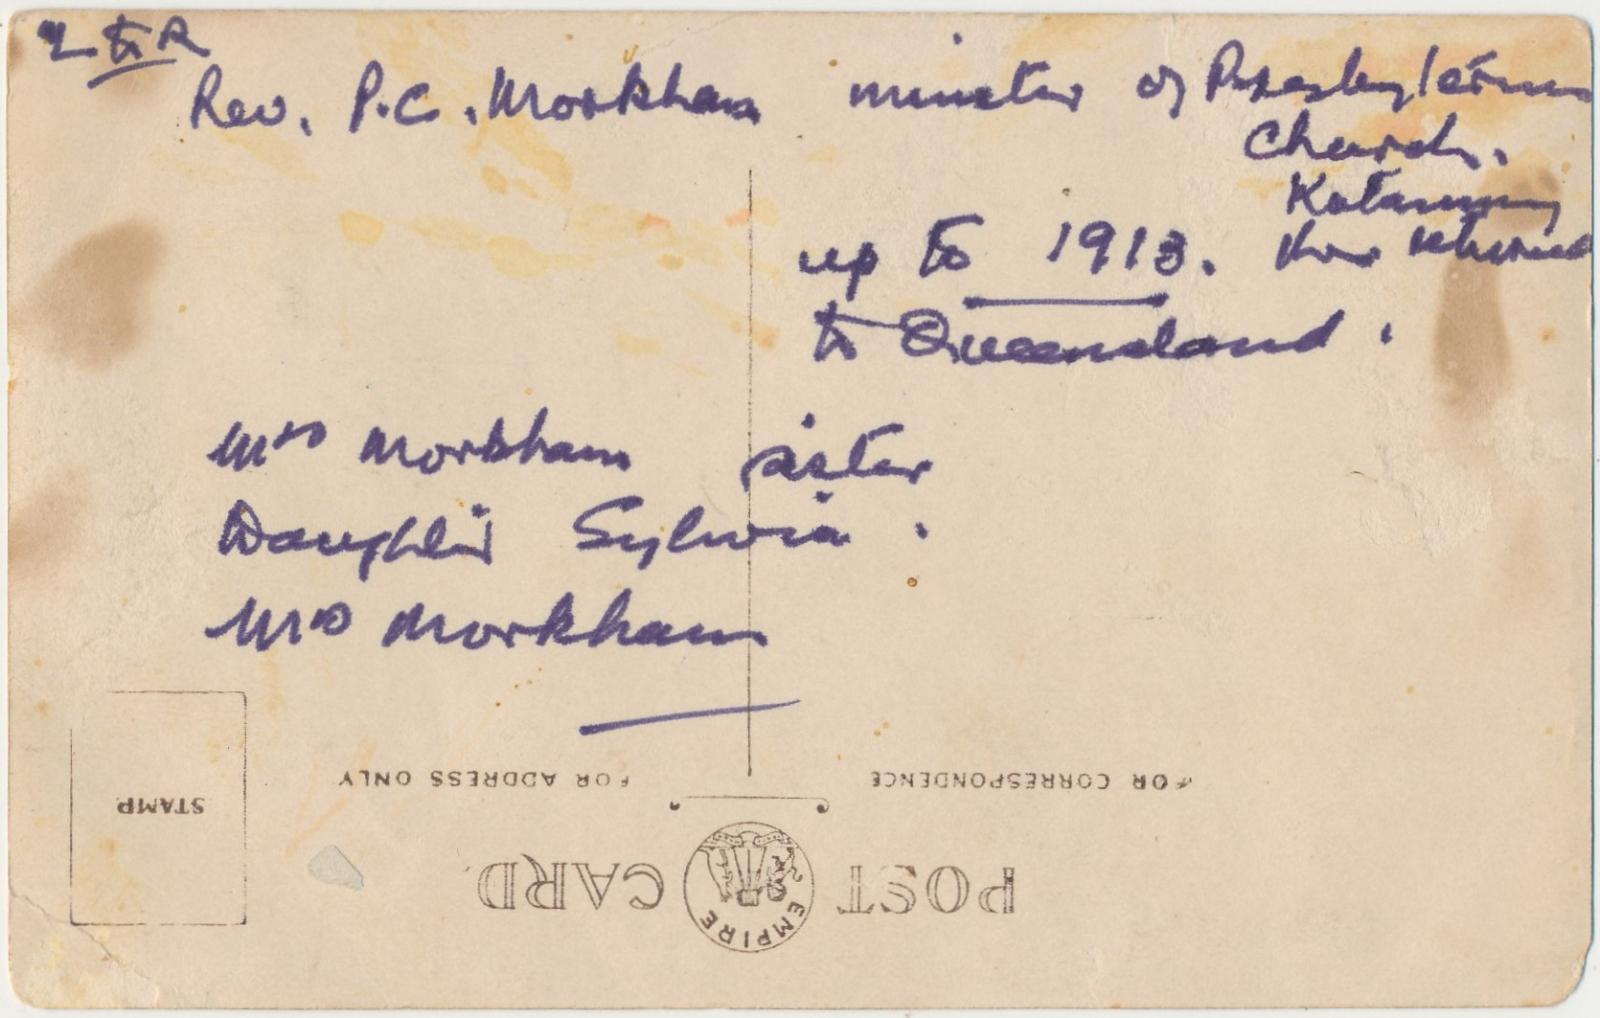 L to R
Rev. P.C. Morkham minister of Presbyterian
Church.
Katanning
up to 1913. then returned
to Queensland.
Mrs Morkham sister
Daughter Sylvia.
Mrs Morkham
FOR ADDRESS ONLY
FOR CORRESPONDENCE
STAMP
POST CARD
EMPIRE